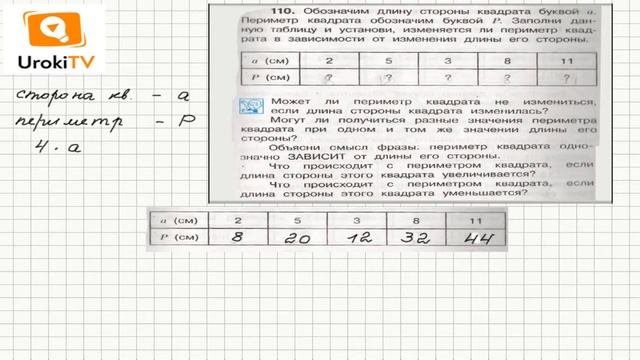 UrokiTV
сторона кв. - а
периметр - Р
4 · а
110. Обозначим длину стороны квадрата буквой а.
Периметр квадрата обозначим буквой Р. Заполни дан-
ную таблицу и установи, изменяется ли периметр квад-
рата в зависимости от изменения длины его стороны.
а (см) 2 5 3 8 11
Р (см) ? ? ? ? ?
Может ли периметр квадрата не измениться,
если длина стороны квадрата изменилась?
Могут ли получиться разные значения периметра
квадрата при одном и том же значении длины его
стороны?
Объясни смысл фразы: периметр квадрата одно-
значно ЗАВИСИТ от длины его стороны.
Что происходит с периметром квадрата, если
длина стороны этого квадрата увеличивается?
Что происходит с периметром квадрата, если
длина стороны этого квадрата уменьшается?
а (см) 2 5 3 8 11
Р (см) 8 20 12 32 44